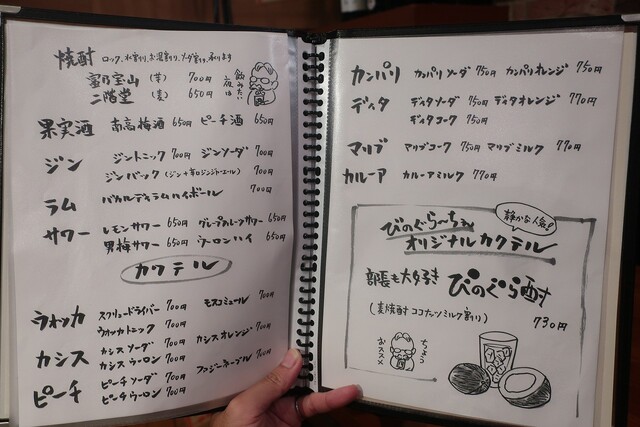 焼酎 ロック、水割り、お湯割り、ソーダ割り、承ります
富乃宝山 (芋) 700円
二階堂 (麦) 650円
飲みたい
夜は
果実酒 南高梅酒 650円 ピーチ酒 650円
ジン ジントニック 700円 ジンソーダ 700円
ジンバック (ジン+辛口ジンジャエール) 700円
ラム バカルディラムハイボール 700円
サワー レモンサワー 650円 グレープフルーツサワー 650円
男梅サワー 650円 ウーロンハイ 650円
カクテル
ウォッカ スクリュードライバー 700円 モスコミュール 700円
ウォッカトニック 700円
カシス カシスソーダ 700円 カシスオレンジ 700円
カシスウーロン 700円
ピーチ ピーチソーダ 700円 ファジーネーブル 700円
ピーチウーロン 700円
カンパリ カンパリソーダ 750円 カンパリオレンジ 750円
ディタ ディタソーダ 750円 ディタオレンジ 770円
ディタコーク 750円
マリブ マリブコーク 750円 マリブミルク 770円
カルーア カルーアミルク 770円
静かな人気!
ぴのぐら〜ちぇ
オリジナルカクテル
部長も大好き ぴのぐら酎
(麦焼酎ココナッツミルク割り) 730円
ちょう
おススメ